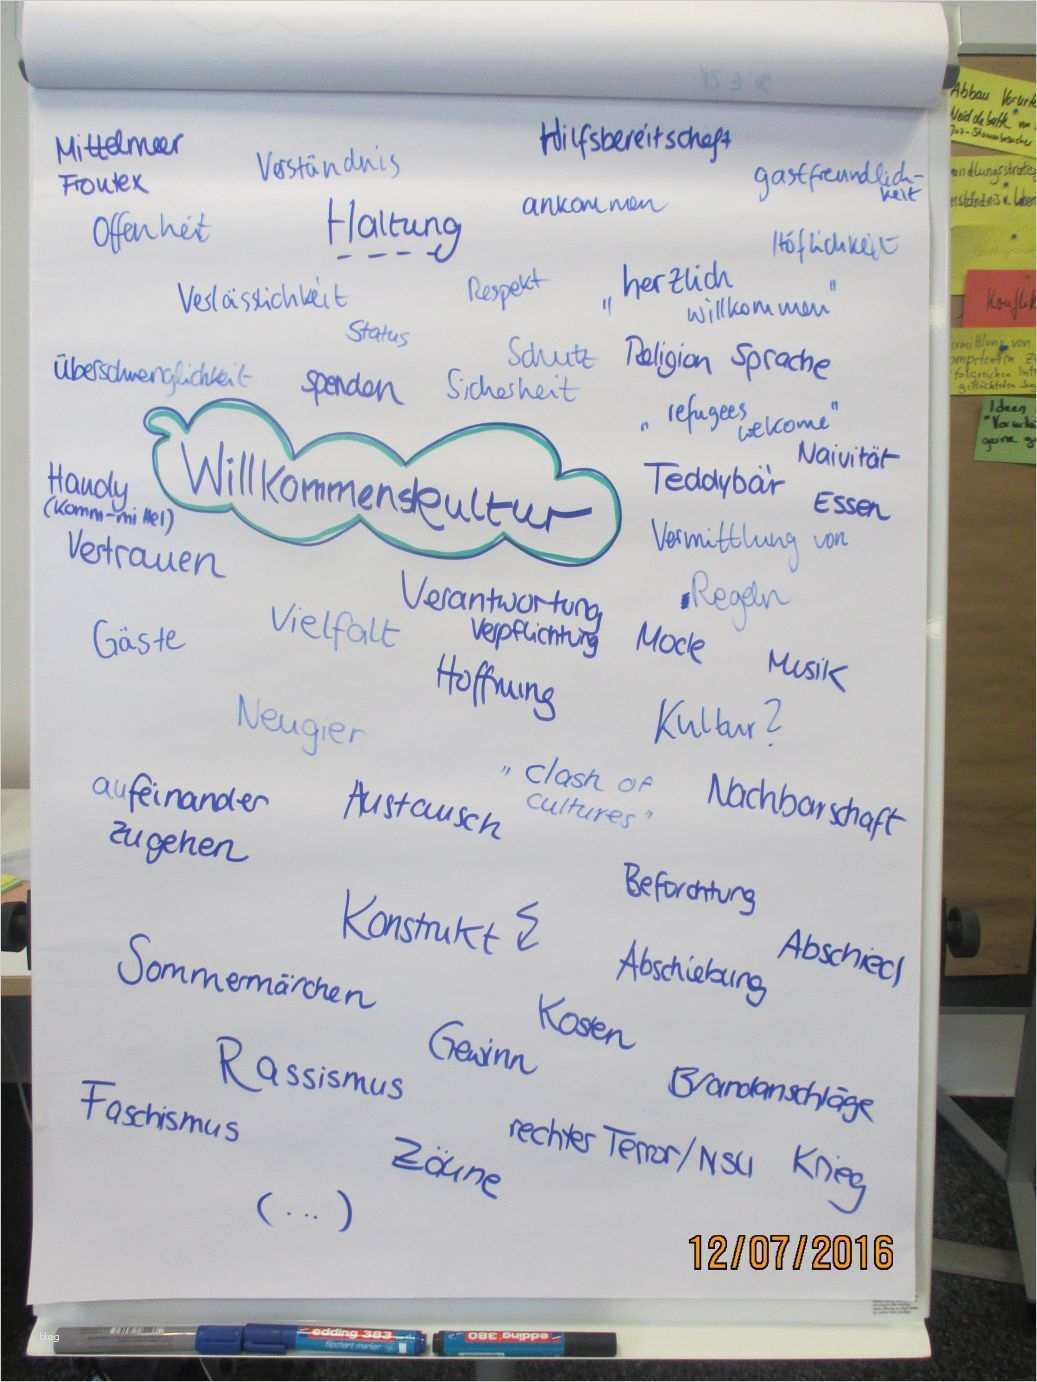 Mittelmeer
Frontex
Verständnis
Hilfsbereitschaft
gastfreundlich-
keit
Offenheit
Haltung
ankommen
Höflichkeit
Verlässlichkeit
Respekt
„herzlich
willkommen"
Status
Schutz
Religion Sprache
Überschwenglichkeit
spenden
Sicherheit
„refugees
welcome"
Naivität
Willkommenskultur
Teddybär
Essen
Handy
(Komm-mittel)
Vertrauen
Vermittlung von
Regeln
Verantwortung
Verpflichtung
Vielfalt
Gäste
Mode
Musik
Hoffnung
Neugier
Kultur?
„clash of
cultures"
aufeinander
zugehen
Austausch
Nachbarschaft
Beforchtung
Konstrukt
Abschied
Abschiebung
Sommermärchen
Kosten
Gewinn
Rassismus
Brandanschläge
Faschismus
rechter Terror/NSU
Krieg
Zäune
(...)
12/07/2016
Abbau
von
Konflik
Ideen
gerne
edding 383
flipchart marker
edding 380
blog